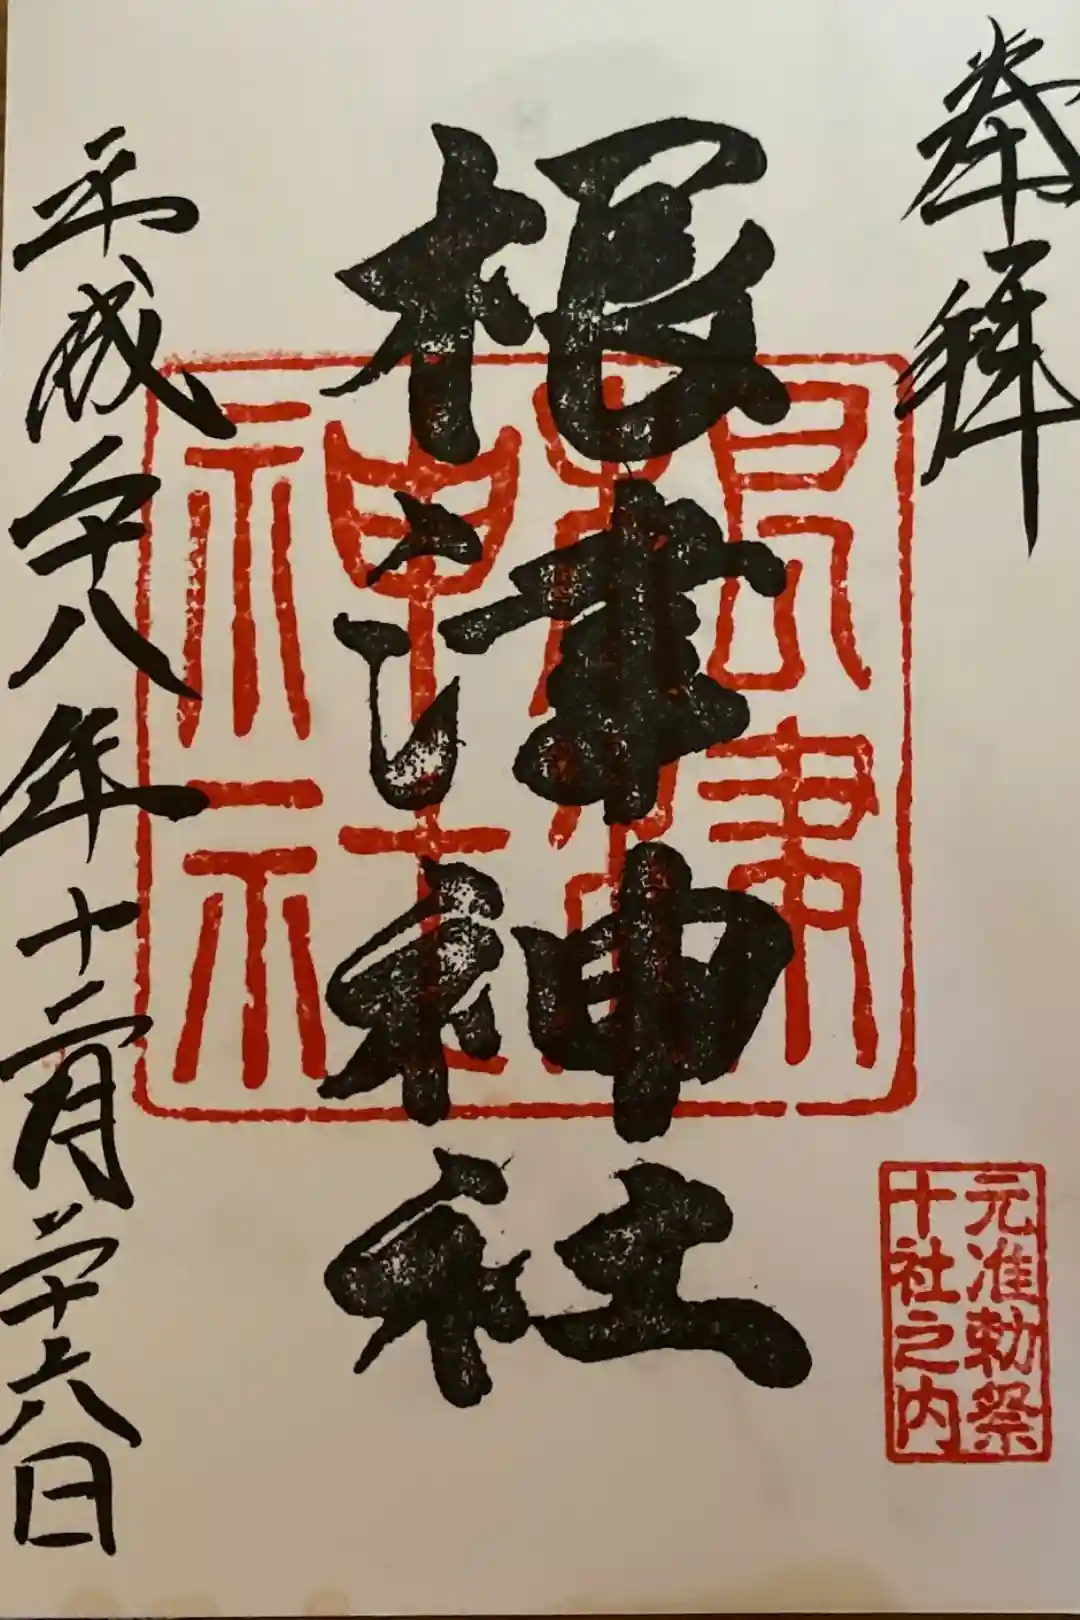 奉拝
根津神社
根津神社
元准勅祭
十社之内
平成二十八年十二月二十六日